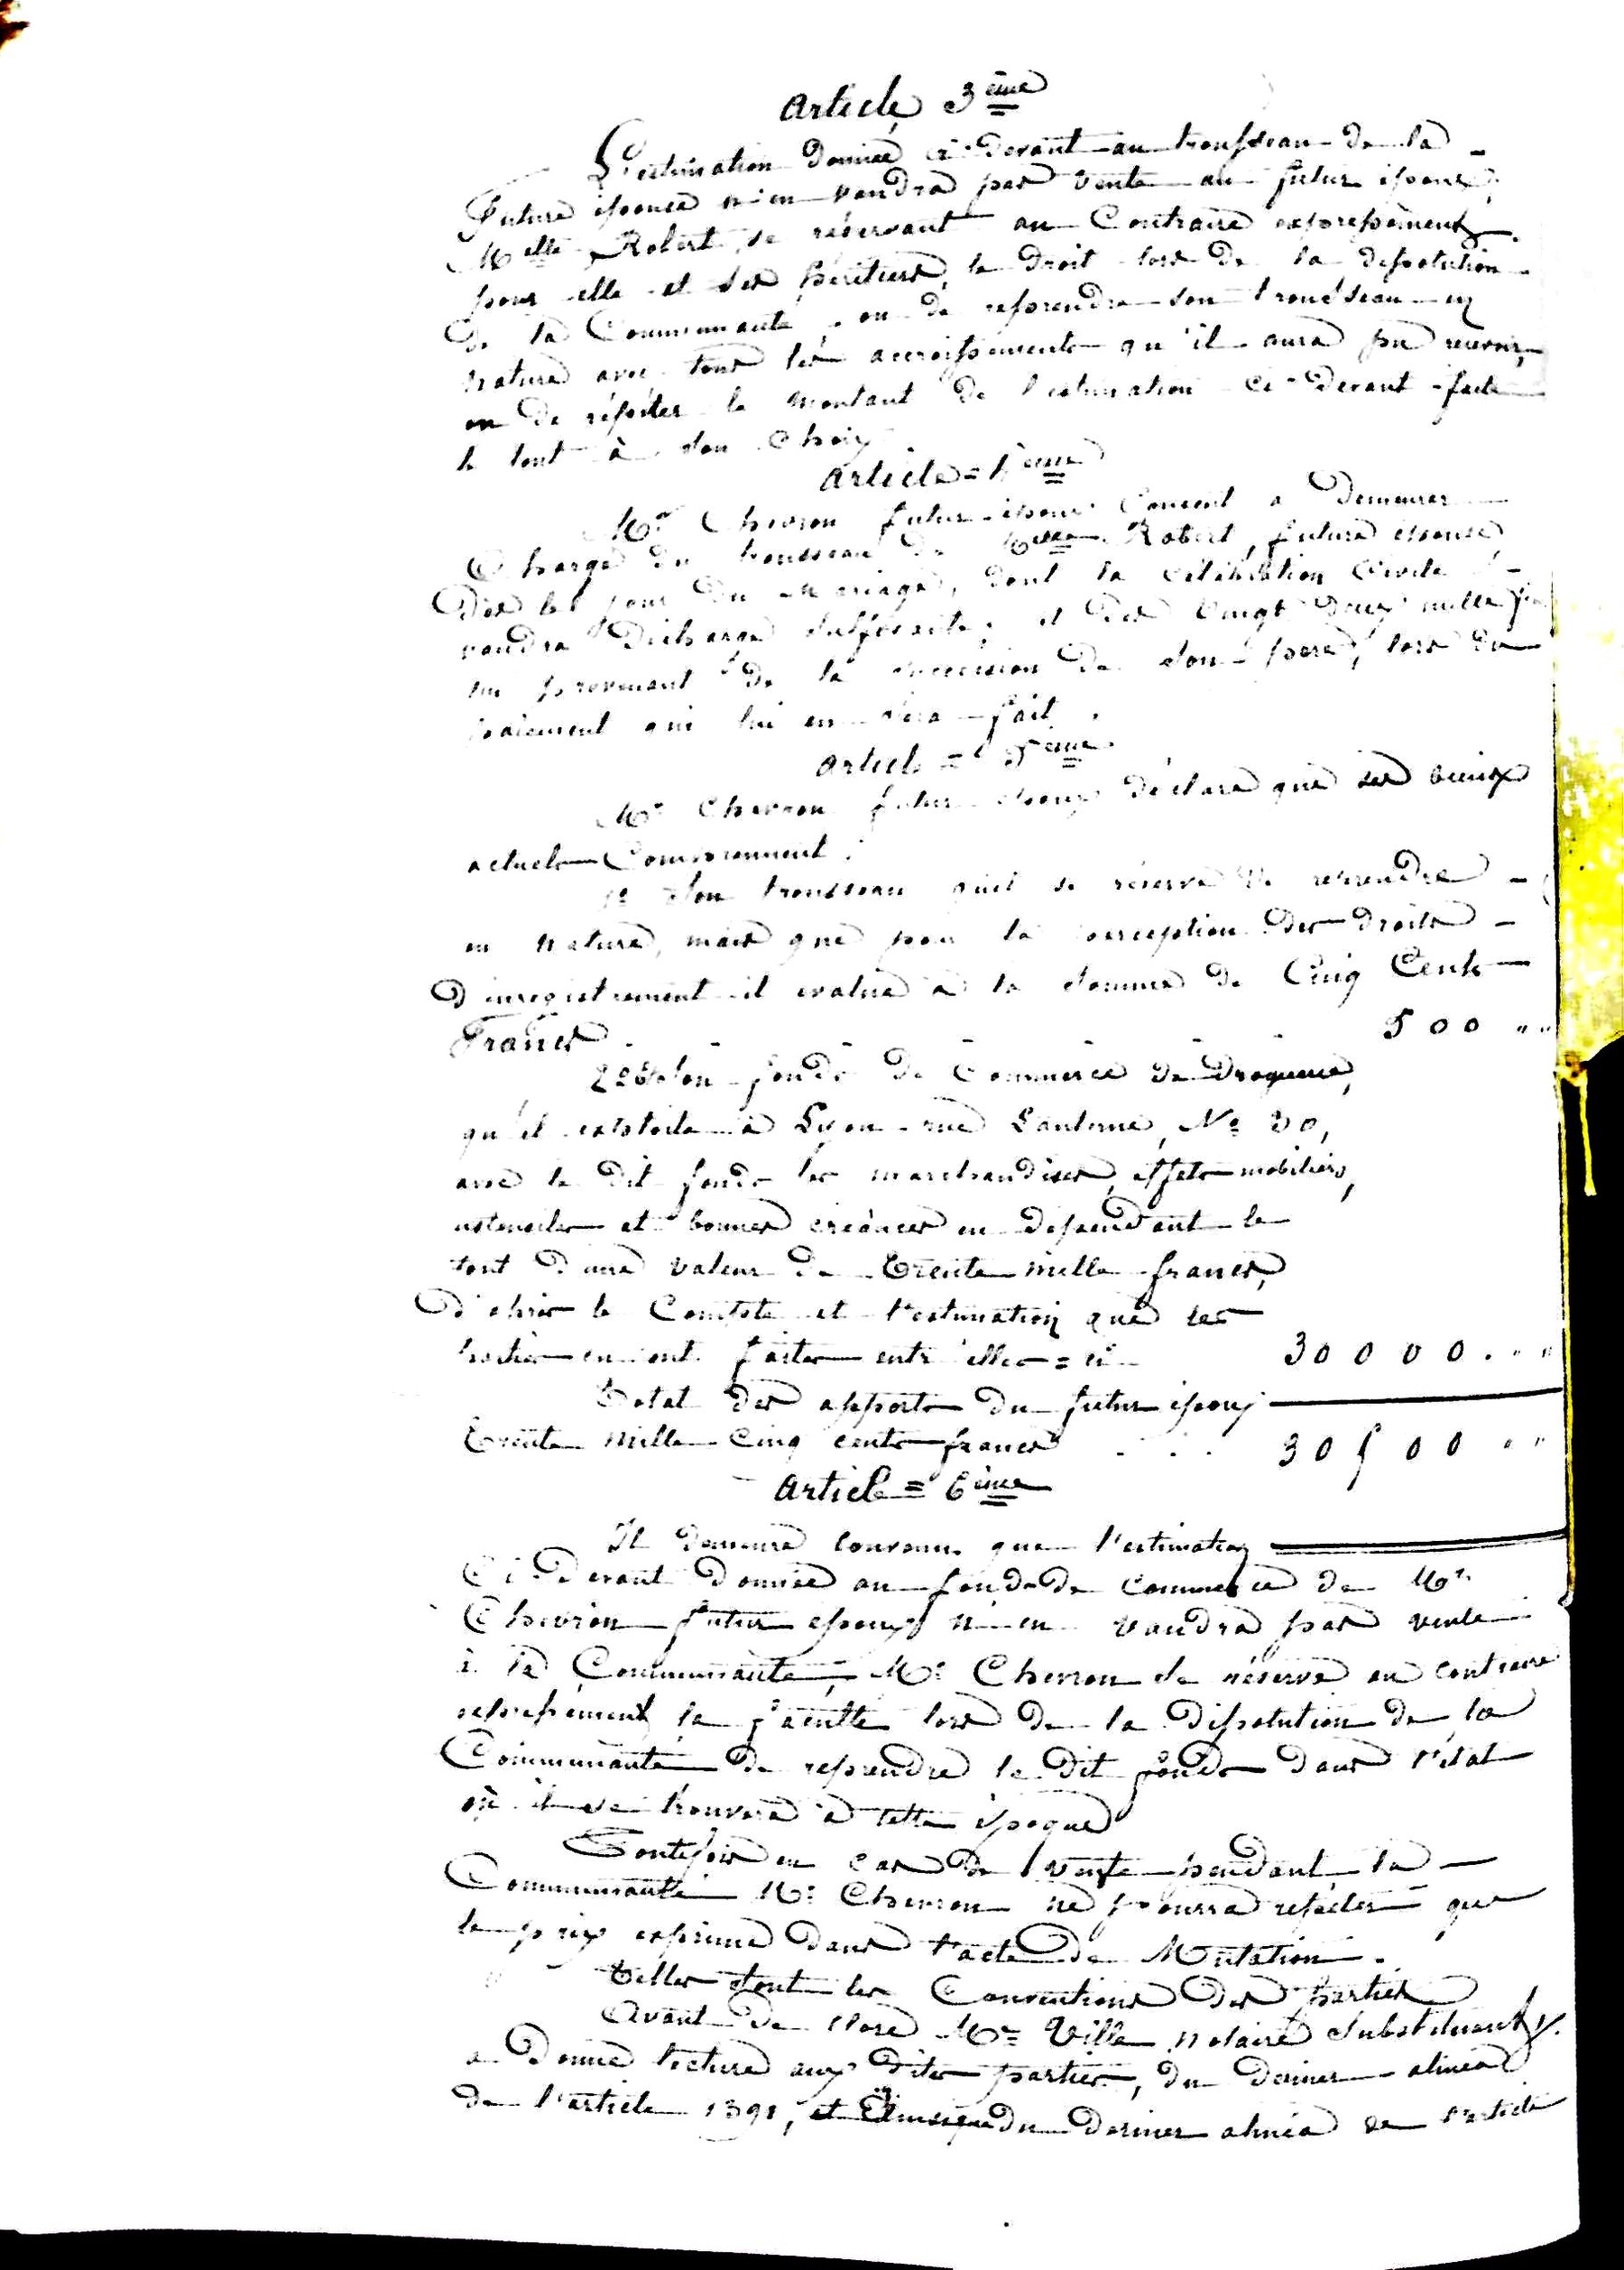 Article 3ème
L'estimation donnée ci-devant au trousseau de la
future épouse n'en vaudra pas vente au futur époux,
Melle Robert, se réservant au Contraire expressément
pour elle et ses héritiers, le droit lors de la dissolution
de la Communauté, ou de reprendre son trousseau en
nature avec tous les accroissements qu'il aura pu recevoir,
ou de répéter le montant de l'estimation ci-devant faite
le tout à son Choix
Article = 4ème
Mr Chevron futur époux Consent à demeurer
Chargé du trousseau de Melle Robert, future épouse,
dès le jour du mariage, dont la célébration Civile
vaudra décharge suffisante, et des vingt deux mille
provenant de la succession de son père, lors du
paiement qui lui en sera fait.
Article = 5ème
Mr Chevron futur époux déclare que ses biens
actuels Comprennent :
1º Son trousseau qu'il se réserve de reprendre
en nature, mais que pour la perception des droits
d'enregistrement il évalue à la somme de Cinq Cents
Francs 500 " "
2º Son fonds de Commerce de Droguerie,
qu'il exploite à Lyon rue Lanterne, Nº 30,
avec le dit fonds les marchandises, effets mobiliers,
ustensiles et bonnes créances en dépendant le
tout d'une valeur de Trente mille francs,
d'après le Compte et l'estimation que les
parties en ont faites entr'elles = ci 30000 . " "
Total des apports du futur époux
Trente mille Cinq cents francs . . . 30500 " "
Article = 6ème
Il demeure convenu que l'estimation
Ci-devant donnée au fonds de Commerce de Mr
Chevron futur époux n'en vaudra pas vente
à la Communauté, Mr Chevron se réserve au contraire
expressément la faculté lors de la dissolution de la
Communauté de reprendre le dit fonds dans l'état
où il se trouvera à cette époque
Toutefois en cas de vente pendant la
Communauté Mr Chevron ne pourra répéter que
le prix exprimé dans l'acte de Mutation.
Telles sont les Conventions des parties
Avant de clore Me Ville notaire substituant
a donné lecture aux dites parties, du dernier alinéa
de l'article 1391, et du dernier alinéa de l'article